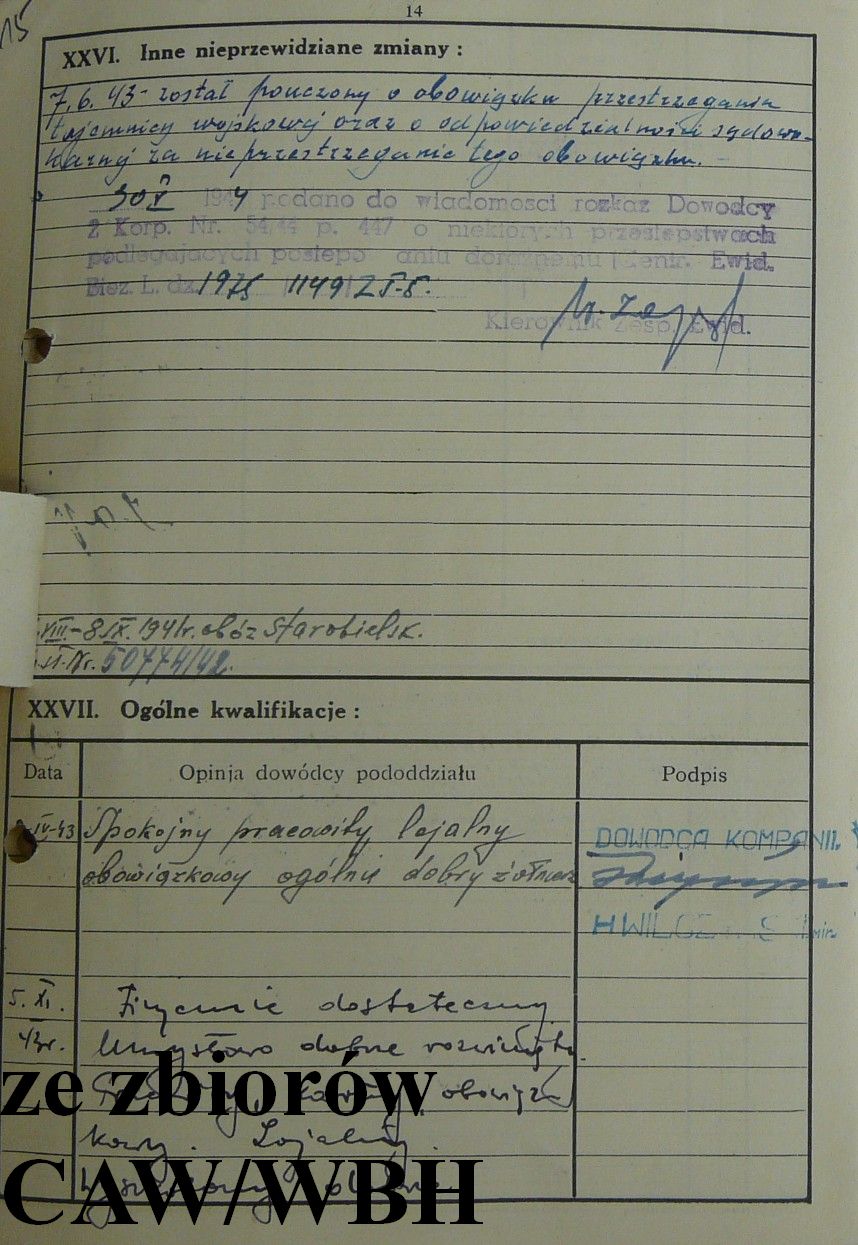 15
14
XXVI. Inne nieprzewidziane zmiany :
7.6.43 - został pouczony o obowiązku przestrzegania
tajemnicy wojskowej oraz o odpowiedzialności sądowo-
karnej za nieprzestrzeganie tego obowiązku.
30 V 1944 podano do wiadomosci rozkaz Dowodcy
2 Korp. Nr. 54/44 p. 447 o niektorych przestepstwach
podlegajacych postepo aniu doraznemu Ewid.
Biez. L. dz. 1975
Kierownik Zesp. Ewid.
VIII.-8 IX. 1941r. obóz Starobielsk.
Nr. 50774/42.
XXVII. Ogólne kwalifikacje :
Data Opinja dowódcy pododdziału Podpis
IV-43 Spokojny pracowity lojalny DOWODCA KOMPANII.
obowiązkowy ogólnie dobry żołnierz
5. XI. Fizycznie dostateczny
43r. Umysłowo dobrze rozwinięty.
obowiąz
kowy. Lojalny.
ze zbiorów
CAW/WBH